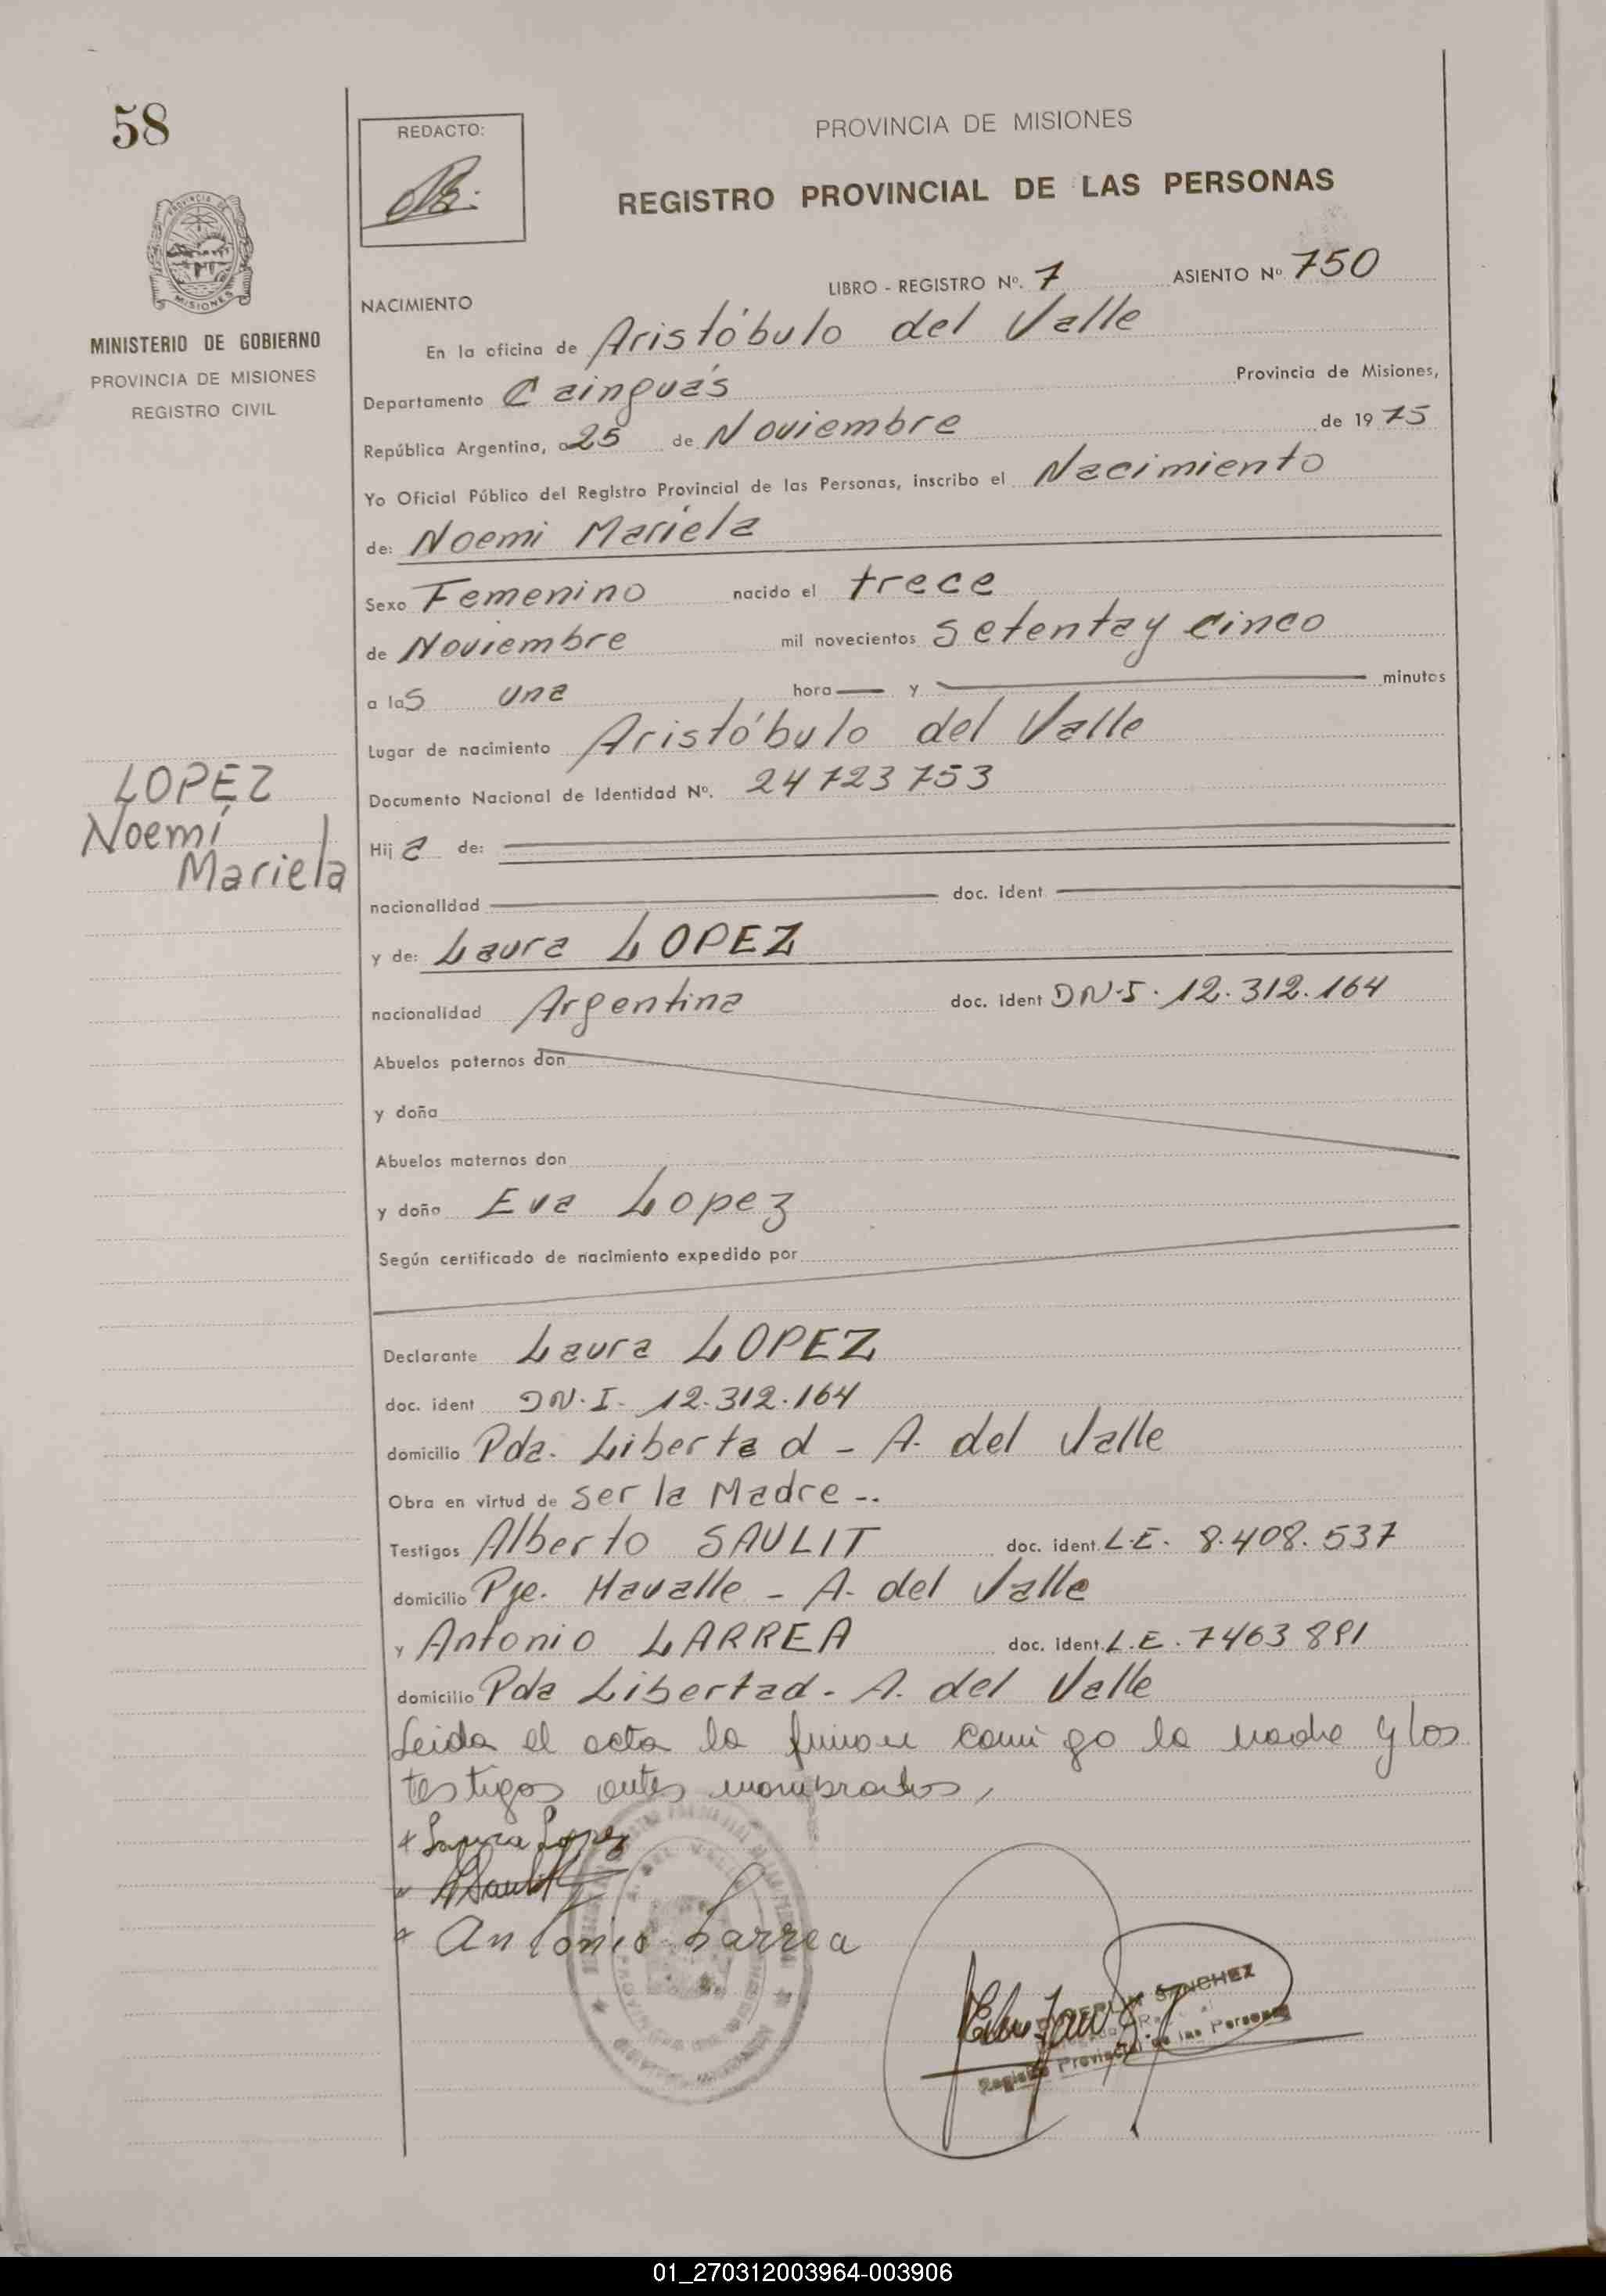 58
REDACTO:
PROVINCIA DE MISIONES
REGISTRO PROVINCIAL DE LAS PERSONAS
MISIONES
MINISTERIO DE GOBIERNO
PROVINCIA DE MISIONES
REGISTRO CIVIL
LOPEZ
Noemí
Mariela
LIBRO - REGISTRO Nº. 7 ASIENTO Nº 750
NACIMIENTO
En la oficina de Aristóbulo del Valle
Departamento Cainguás Provincia de Misiones,
República Argentina, a 25 de Noviembre de 1975
Yo Oficial Público del Registro Provincial de las Personas, inscribo el Nacimiento
de: Noemi Mariela
Sexo Femenino nacido el trece
de Noviembre mil novecientos setentay cinco
a las una hora y minutos
Lugar de nacimiento Aristóbulo del Valle
Documento Nacional de Identidad Nº. 24723753
Hija de:
nacionalidad doc. ident
y de: Laura LOPEZ
nacionalidad Argentina doc. ident DN.I. 12.312.164
Abuelos paternos don
y doña
Abuelos maternos don
y doña Eva Lopez
Según certificado de nacimiento expedido por
Declarante Laura LOPEZ
doc. ident DN.I- 12.312.164
domicilio Pda. Libertad - A. del Valle
Obra en virtud de ser la Madre -.
Testigos Alberto SAULIT doc. ident. L.E. 8.408.537
domicilio Pje. Mavalle - A. del Valle
y Antonio LARREA doc. ident. L.E. 7463891
domicilio Pda Libertad - A. del Valle
Leida el acta la firman comigo la madre y los
testigos antes nombrados,
Laura Lopez
ASaulit
Antonio Larrea
SANCHEZ
Registro Provincial de las Personas
01_270312003964-003906